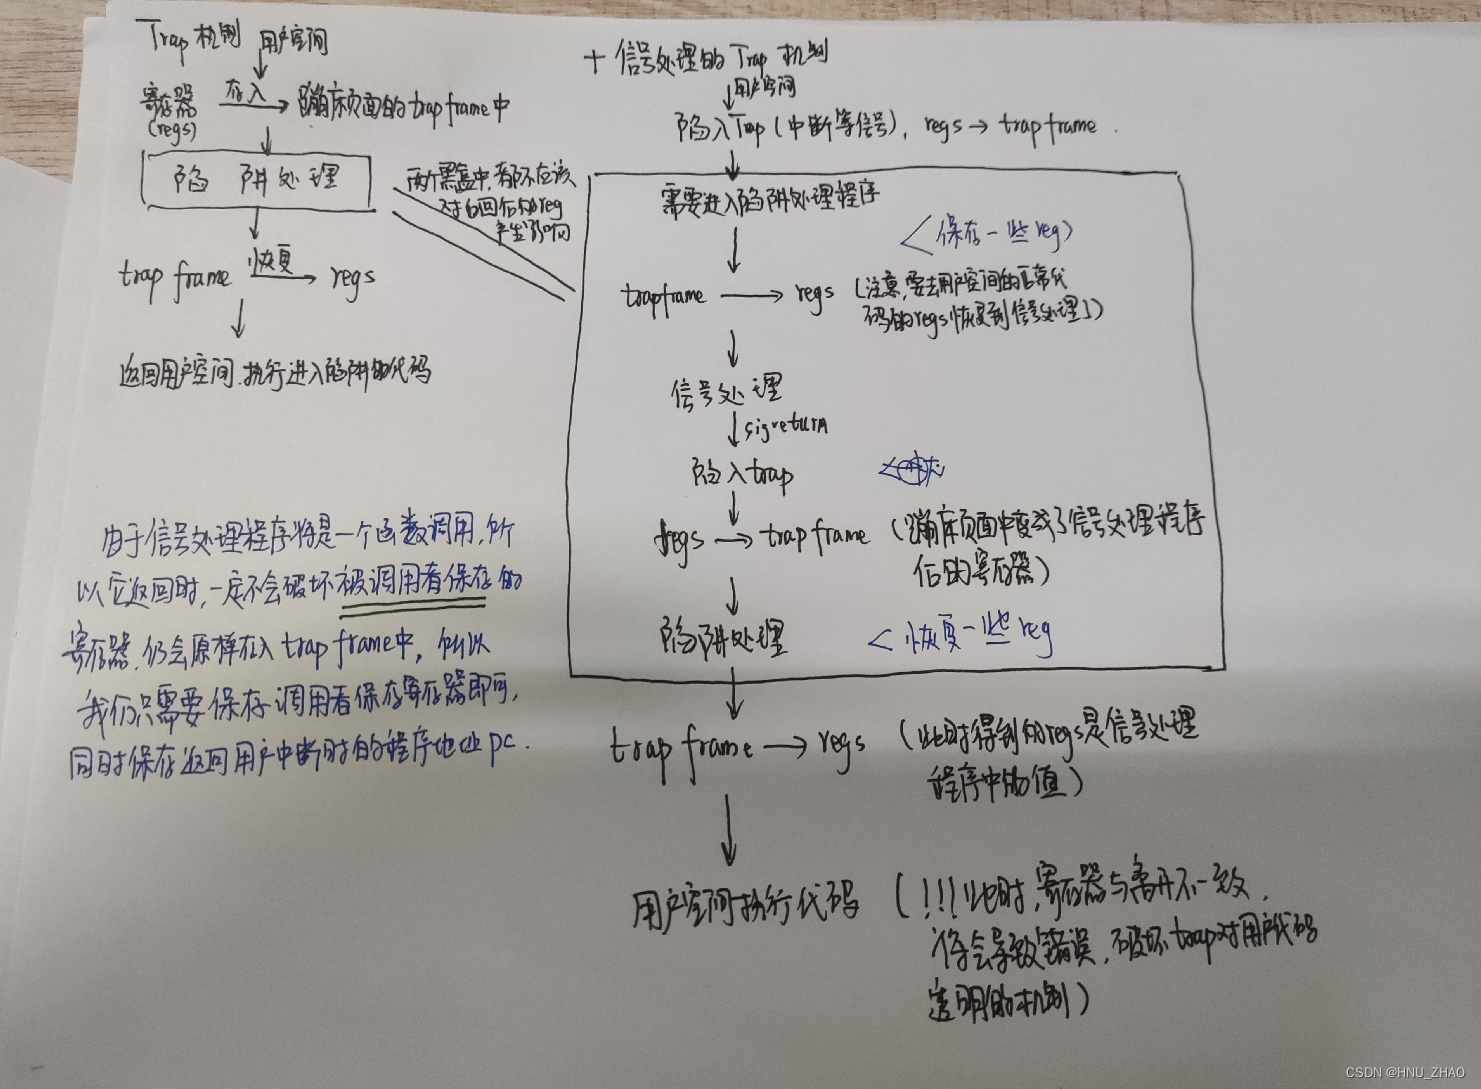 Trap 机制 用户空间
寄存器 存入 蹦床页面的trap frame中
(regs)
陷 阱处理
trap frame 恢复 regs
返回用户空间,执行进入陷阱的代码
两个黑盒中,都不应该
对返回后的reg
产生影响
+ 信号处理的 Trap 机制
用户空间
陷入Trap (中断等信号), regs → trap frame .
需要进入陷阱处理程序
<保存一些reg>
trapframe → regs (注意,要去用户空间的正常代
码的regs恢复到信号处理)
信号处理
sigreturn
陷入trap
regs → trap frame (蹦床页面中变成了信号处理程序
后的寄存器)
陷阱处理 < 恢复一些 reg
trap frame → regs (此时得到的regs是信号处理
程序中的值)
用户空间执行代码 (!!! 此时,寄存器与离开不一致,
将会导致错误,破坏trap对用户代码
透明的机制)
由于信号处理程序将是一个函数调用,所
以它返回时,一定不会破坏被调用者保存的
寄存器,仍会原样存入 trap frame中,所以
我们只需要保存调用者保存寄存器即可,
同时保存返回用户中断时的程序地址 pc.
CSDN @HNU_ZHAO